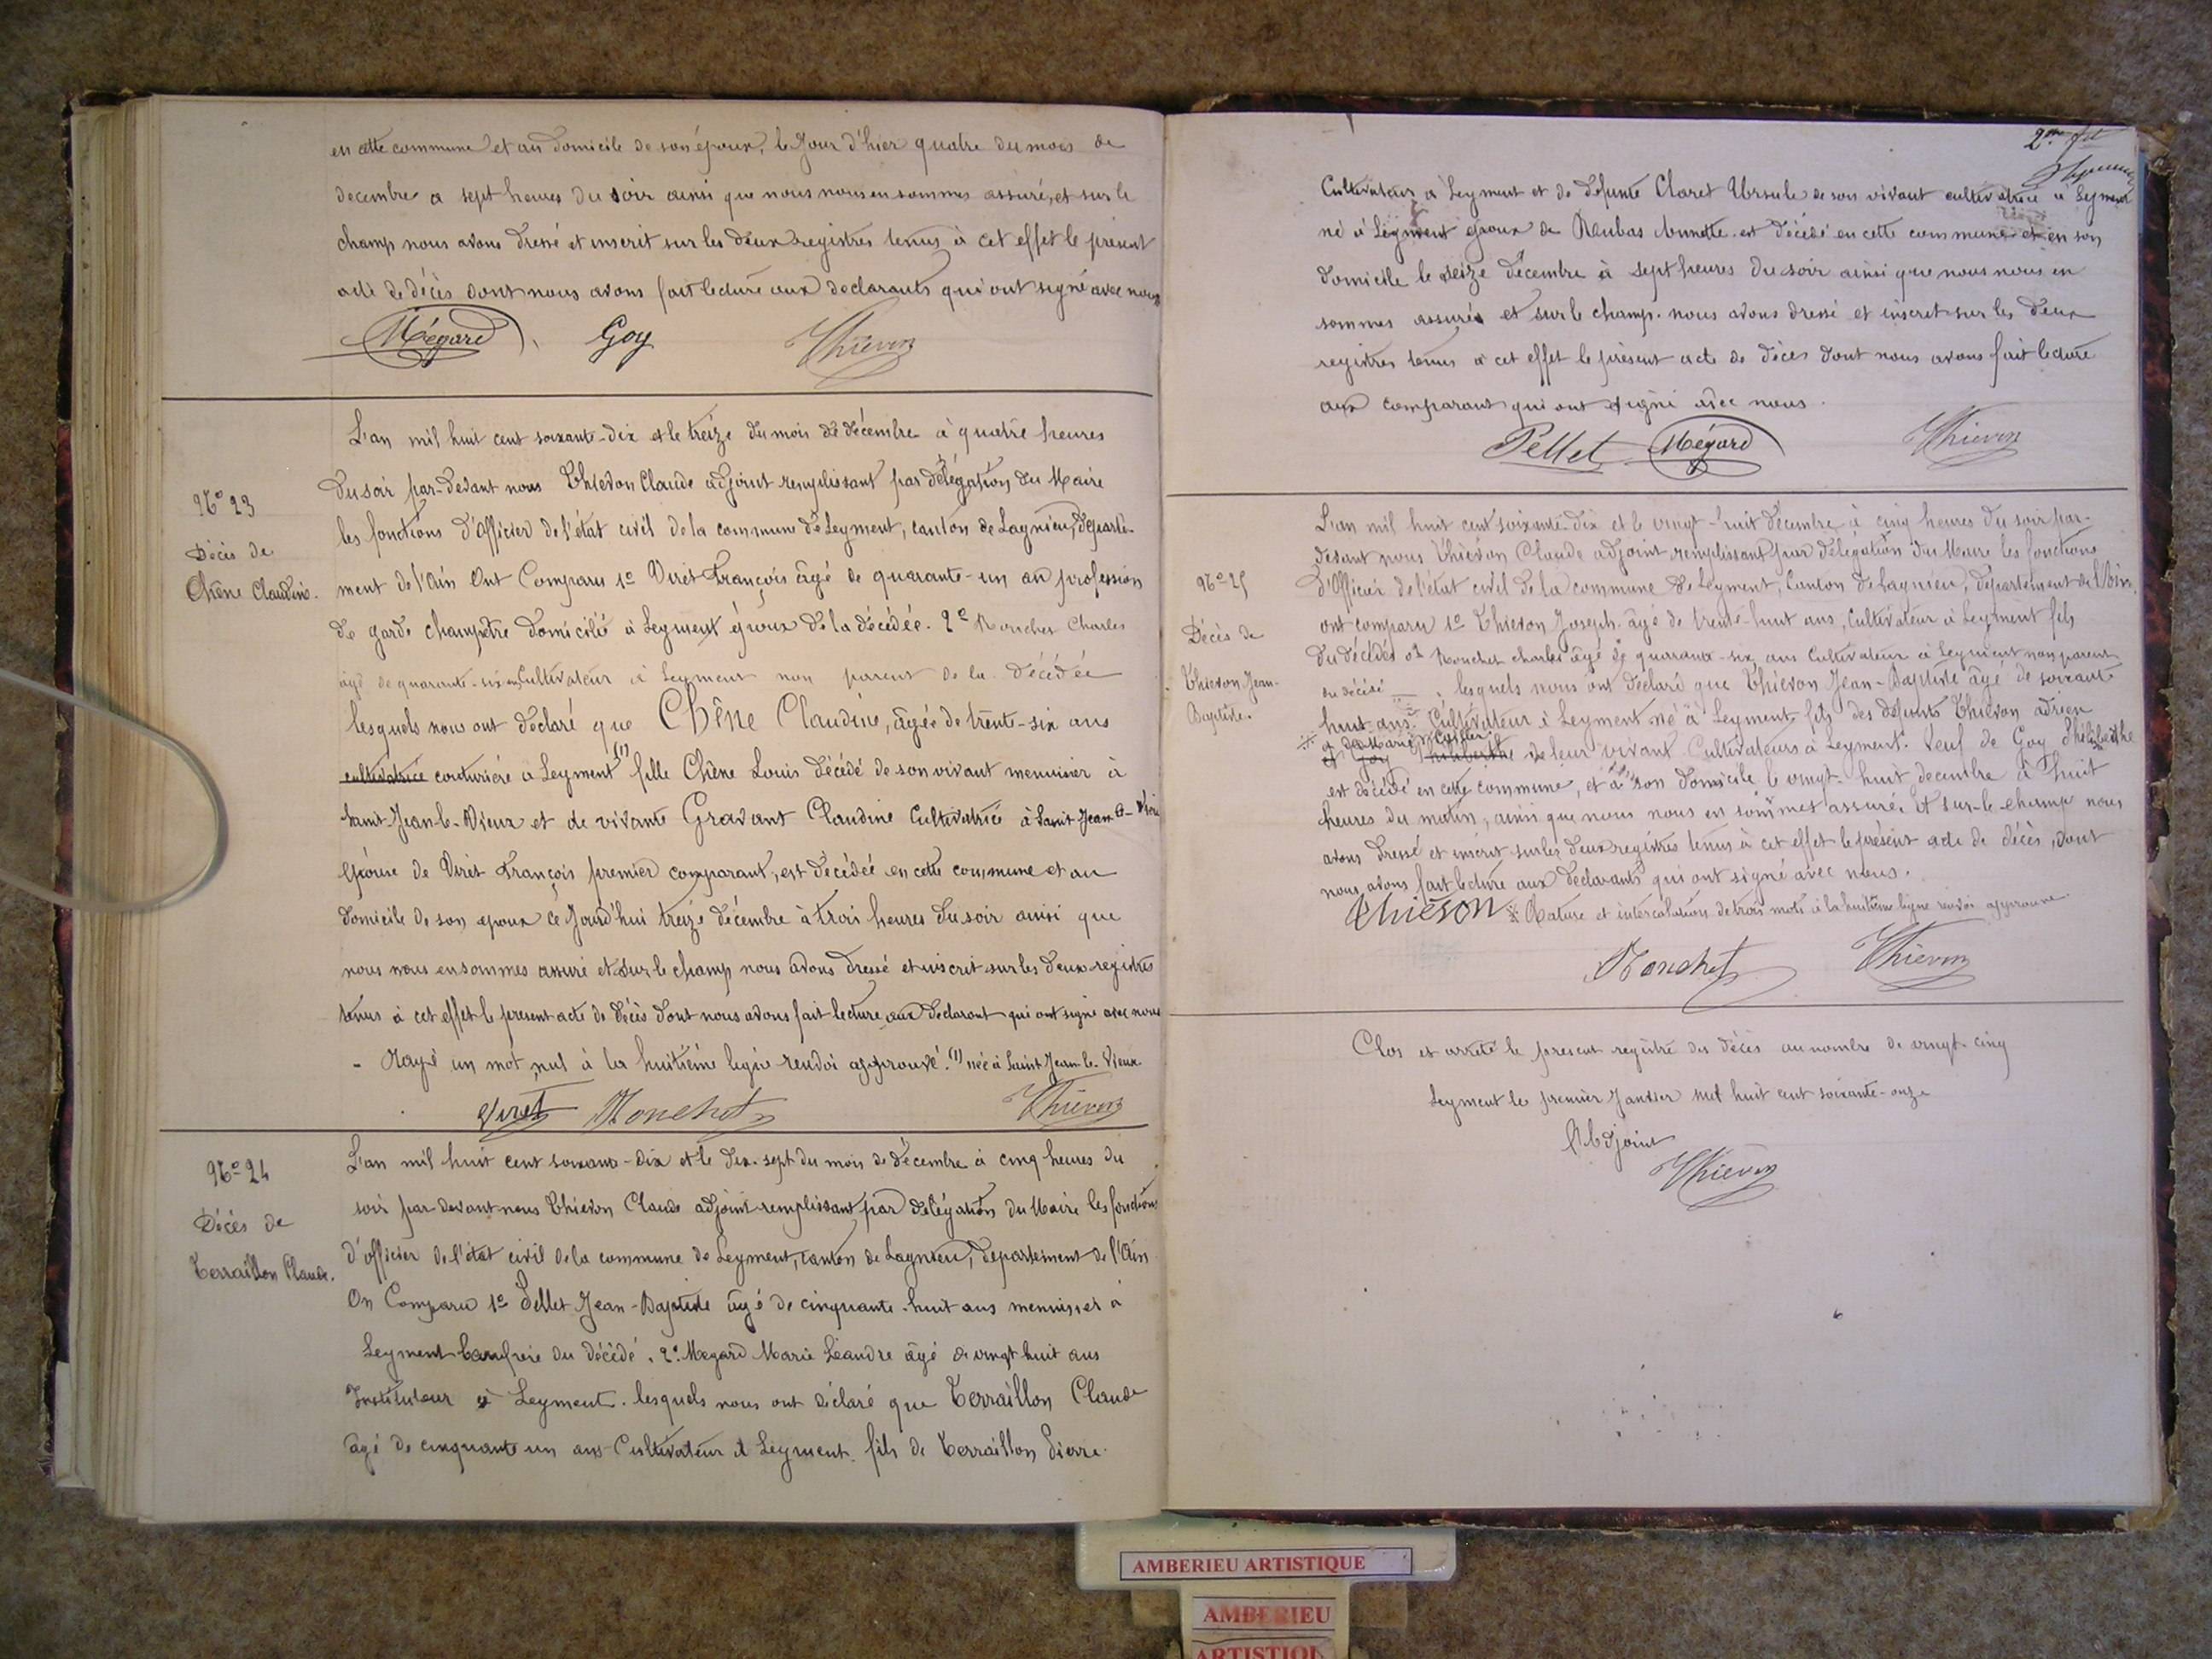 en cette commune et au domicile de son époux, le jour d'hier quatre du mois de
decembre a sept heures du soir ainsi que nous nous en sommes assuré, et sur le
champ nous avons dressé et inscrit sur les deux registres tenus à cet effet le présent
acte de décès dont nous avons fait lecture aux declarants qui ont signé avec nous
Mégard Goy Thievon
N° 23
Décès de
Chêne Claudine.
L'an mil huit cent soixante-dix et le treize du mois de décembre à quatre heures
du soir par-devant nous Thievon Claude adjoint remplissant par délégation du Maire
les fonctions d'Officier de l'état civil de la commune de Leyment, canton de Lagnieu, départe-
ment de l'Ain Ont Comparu 1° Viret François âgé de quarante-un an profession
de garde champêtre domicilié à Leyment époux de la décédée. 2° Monchet Charles
âgé de quarante-six ans Cultivateur à Leyment non parent de la décédée
lesquels nous ont déclaré que Chêne Claudine, âgée de trente-six ans
cultivatrice couturière à Leyment (1) fille Chêne Louis décédé de son vivant menuisier à
Saint-Jean-le-Vieux et de vivante Gravant Claudine Cultivatrice à Saint Jean-le-Vieux
épouse de Viret François premier comparant, est décédée en cette commune et au
domicile de son epoux ce Jourd'hui treize décembre à trois heures du soir ainsi que
nous nous en sommes assuré et sur le champ nous avons dressé et inscrit sur les deux registres
tenus à cet effet le present acte de décès dont nous avons fait lecture aux declarant qui ont signé avec nous
- Rayé un mot nul à la huitième ligne renvoi approuvé. (1) née à Saint Jean-le-Vieux
Viret Monchet Thievon
N° 24
Décès de
Terraillon Claude.
L'an mil huit cent soixante-dix et le dix-sept du mois de décembre à cinq heures du
soir par-devant nous Thievon Claude adjoint remplissant par délégation du Maire les fonctions
d'officier de l'état civil de la commune de Leyment, canton de Lagnieu, departement de l'Ain
On Comparu 1° Pellet Jean-Baptiste âgé de cinquante-huit ans menuisier à
Leyment beaufrère du décédé. 2° Megard Marie Léandre âgé de vingt huit ans
Instituteur à Leyment. lesquels nous ont déclaré que Terraillon Claude
âgé de cinquante un ans Cultivateur à Leyment fils de Terraillon Pierre
Cultivateur à Leyment et de defunte Claret Ursule de son vivant cultivatrice à Leyment
né à Leyment époux de Annette est décédé en cette commune et en son
domicile le seize décembre à sept heures du soir ainsi que nous nous en
sommes assurés et sur le champ nous avons dressé et inscrit sur les deux
registres tenus à cet effet le présent acte de décès dont nous avons fait lecture
aux comparans qui ont signé avec nous.
Pellet Mégard Thievon
N° 25
Décès de
Thievon Jean-
Baptiste.
L'an mil huit cent soixante-dix et le vingt-huit décembre à cinq heures du soir par-
devant nous Thievon Claude adjoint remplissant par délégation du Maire les fonctions
d'Officier de l'état civil de la commune de Leyment, Canton de Lagnieu, département de l'Ain,
ont comparu 1° Thievon Joseph âgé de trente-huit ans, Cultivateur à Leyment fils
du décédés 2° Monchet charles âgé de quarante-six ans Cultivateur à Leyment non parent
du décédé, lesquels nous ont déclaré que Thievon Jean-Baptiste âgé de soixante
huit ans. Cultivateur à Leyment né à Leyment, fils des défunts Thievon adrien
et de Marie Cuiller
et Goy Philiberthe de leur vivant Cultivateurs à Leyment. Veuf de Goy Philiberthe
est décédé en cette commune, et à son domicile le vingt-huit decembre à huit
heures du matin, ainsi que nous nous en sommes assurés et sur-le-champ nous
avons dressé et inscrit sur les deux registres tenus à cet effet le présent acte de décès, dont
nous avons fait lecture aux declarants qui ont signé avec nous.
Thievon Rature et intercalation de trois mots à la huitième ligne renvoi approuvé
Monchet Thievon
Clos et arrêté le present registre des décès au nombre de vingt-cinq
Leyment le premier Janvier mil huit cent soixante-onze
l'Adjoint
Thievon
AMBERIEU ARTISTIQUE
AMBERIEU
ARTISTIQUE